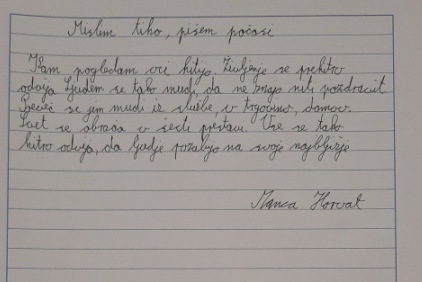 Mislim tiho, pišem počasi
Kam pogledam vsi hitijo. Življenje se prehitro
odvija. Ljudem se tako mudi, da ne znajo niti pozdravit
se jim mudi iz službe, v trgovino, domov.
Svet se obrača v šesti prestavi. Vse se tako
hitro odvija, da ljudje pozabijo na svoje najbližje
Manca Horvat